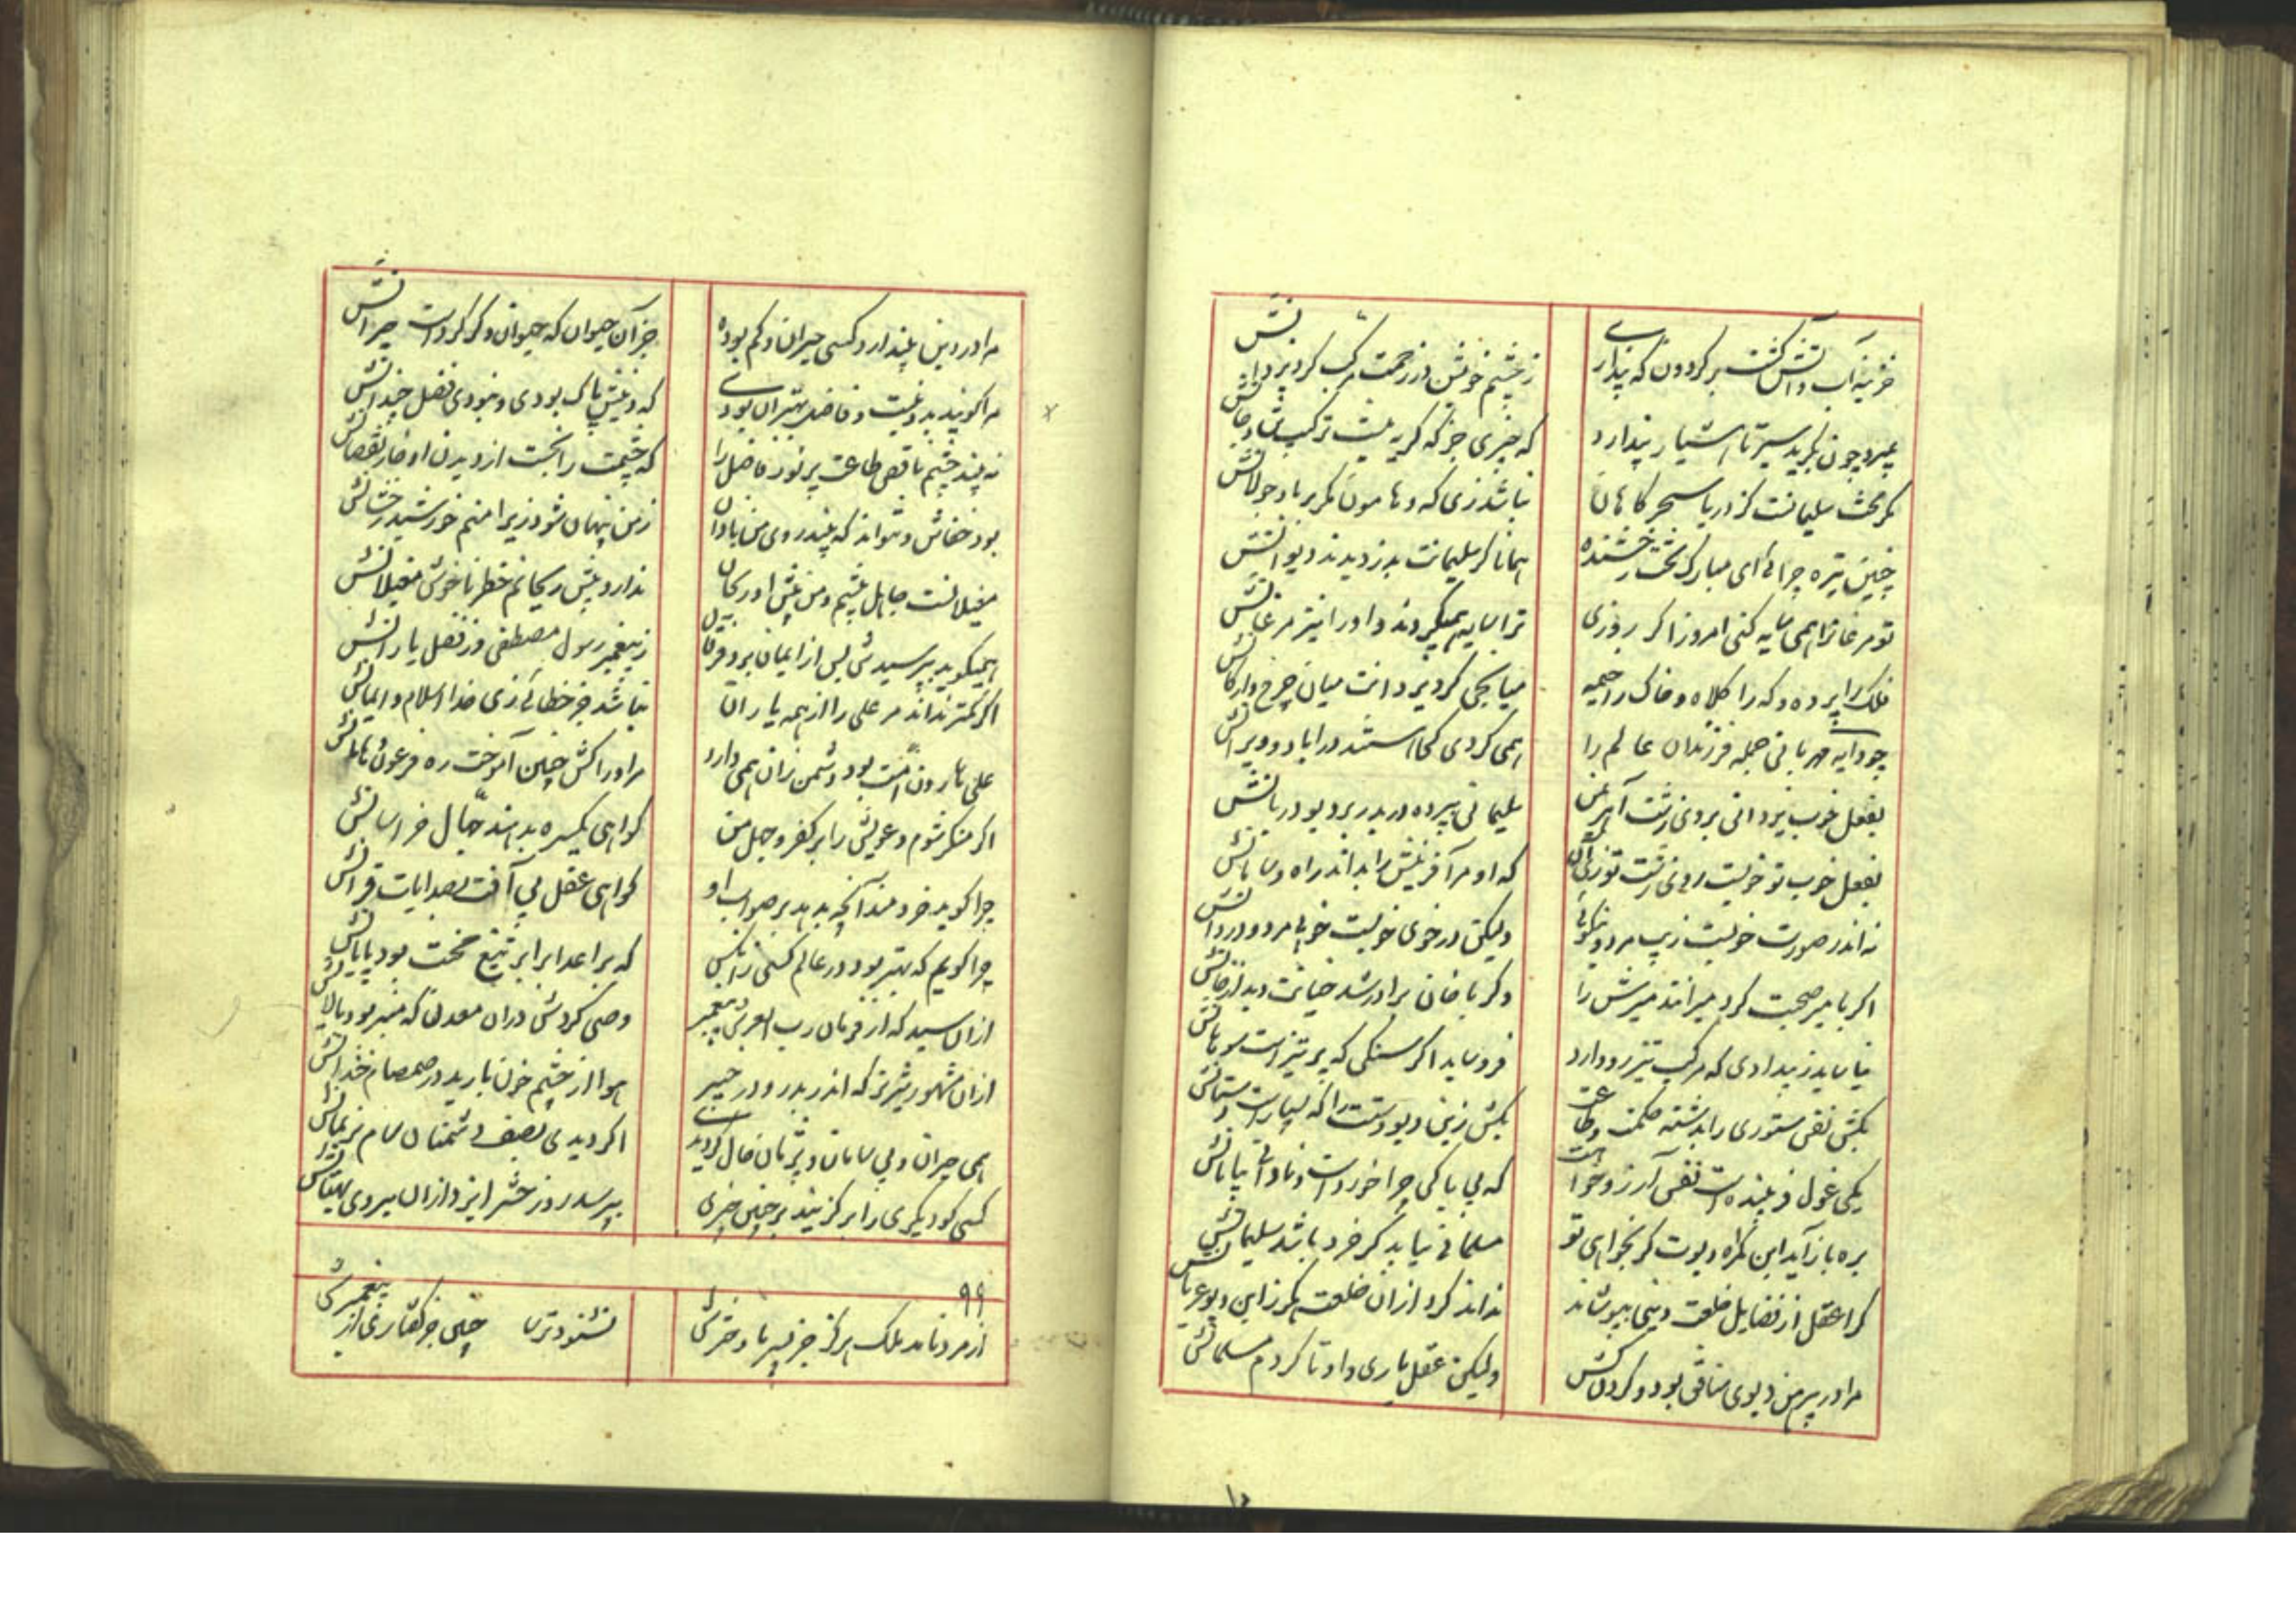 خزینه آب و آتش گشت بر گردون که پنداری
ز خشم خویش در رحمت مرکب کرد یزدانش
بمیرد چون بگرید سیر تا اشیار پندارد
که چیزی جز که گریه نیست ترکیب تن و جانش
مگر تخت سلیمانست کز دریا سحرگاهان
نباشد زی که و هامون مگر بر باد جولانش
چنین تیره چرائی ای مبارک تخت رخشنده
همانا کز سلیمانت بدزدیدند دیوانش
تو مرغانرا همی سایه کنی امروز اگر روزی
ترا سایه همیکردند و او را نیز مرغانش
فلک را پرده و که را کلاه و خاک را خیمه
میانجی کرد یزدانت میان چرخ و ارکانش
چو دایه مهربانی جمله فرزندان عالم را
همی گردی کجا هستند در آباد و ویرانش
بفعل خوب یزدانی بروی زشت آهرمن
سلیمانی پیرده در بدر برد بود دربانش
بفعل خوب تو خوبست روی زشت تو زی آن
که او مر آفرینش را بداند راه و سامانش
نه اندر صورت خوبست زیب مرد و نیکوئی
ولیکن در خوی خوبست خوبی مرد و در دانش
اگر با میر صحبت کرد میر افتد میرش را
وگر با خان برادر شد خیانت دید از خانش
نیاساید ز بیدادی که مرکب تیزرو دارد
فرو ساید اگر سنگی که بر تیزاست سوهانش
بکش نفس ستوری را بدشنه حکمت و طاعت
بکش زین دیو دستت را که بسیار است دستانش
یکی غول فریبنده است نفس آرزو خواهت
که بی باکی چرا خور است و نادانی بیابانش
بره باز آید این گمراه دیوت گر بخواهی تو
مسلمانی نیابد گر خرد باشد سلیمانش
کرا عقل از فضایل خلعت دینی بپوشاند
نداند کرد از آن خلعت مگر زین دیو عریانش
مرا در پیرهن دیوی منافق بود و گردنکش
ولیکن عقل یاری داد تا کردم مسلمانش
مرا در دین نپندارد کسی حیران و گم بوده
جز آن حیوان که حیوان دگر کرد است حیرانش
مرا گویند بددینست و فاضل بهتر آن بودی
که دینش پاک بودی و نبودی فضل چندانش
نه بیند چشم ناقص طلعت پر نور فاضل را
که چشمت را بخست از دیدن او خار نقصانش
بود خفاش و نتواند که بیند روی من نادان
ز من پنهان شود زیرا منم خورشید رخشانش
مغیلانست جاهل پیشم و من پیش او ریحان
ندارد پیش ریحانم خطر ناخوش مغیلانش
همیگوید بپرسیدش پس از ایمان بفرقان بر
ز پیغمبر رسول مصطفی وز فضل یارانش
اگر کمتر نداند مر علی را از همه یاران
نباشد جز خطائی زی خدا اسلام و ایمانش
علی هارون امت بود دشمن زان همی دارد
مر او را کش چنین آموخت ره فرعون هامانش
اگر منکر شوم دعویش را بر کفر و جهل من
گواهی یکسره بدهند جهال خراسانش
چرا گوید خردمند آنچه ندهد بر صواب او
گواهی عقل بی آفت بصد آیات قرآنش
چرا گویم که بهتر بود در عالم کسی زانکس
که بر اعدا برابر تیغ محنت بود پایانش
از آن سید که از فرمان رب العرش پیغمبر
وصی کردش در آن معدن که منبر بود پالانش
از آن مشهور شیر نر که اندر بدر و در خیبر
هوا از چشم خون بارید در صمصام خندانش
همی حیران و بی سامان و پژمان حال گردید
اگر دیدی بصف دشمنان سام نریمانش
کسی کو دیگری را بر گزیند بر چنین حری
بپرسد روز حشر ایزد از آن بیروی بهتانش
۹۹
از مرد نماند ملک هرگز جز بپسر یا دخترش
نشنود ترسا چنین جز گفتاری از پیغمبرش